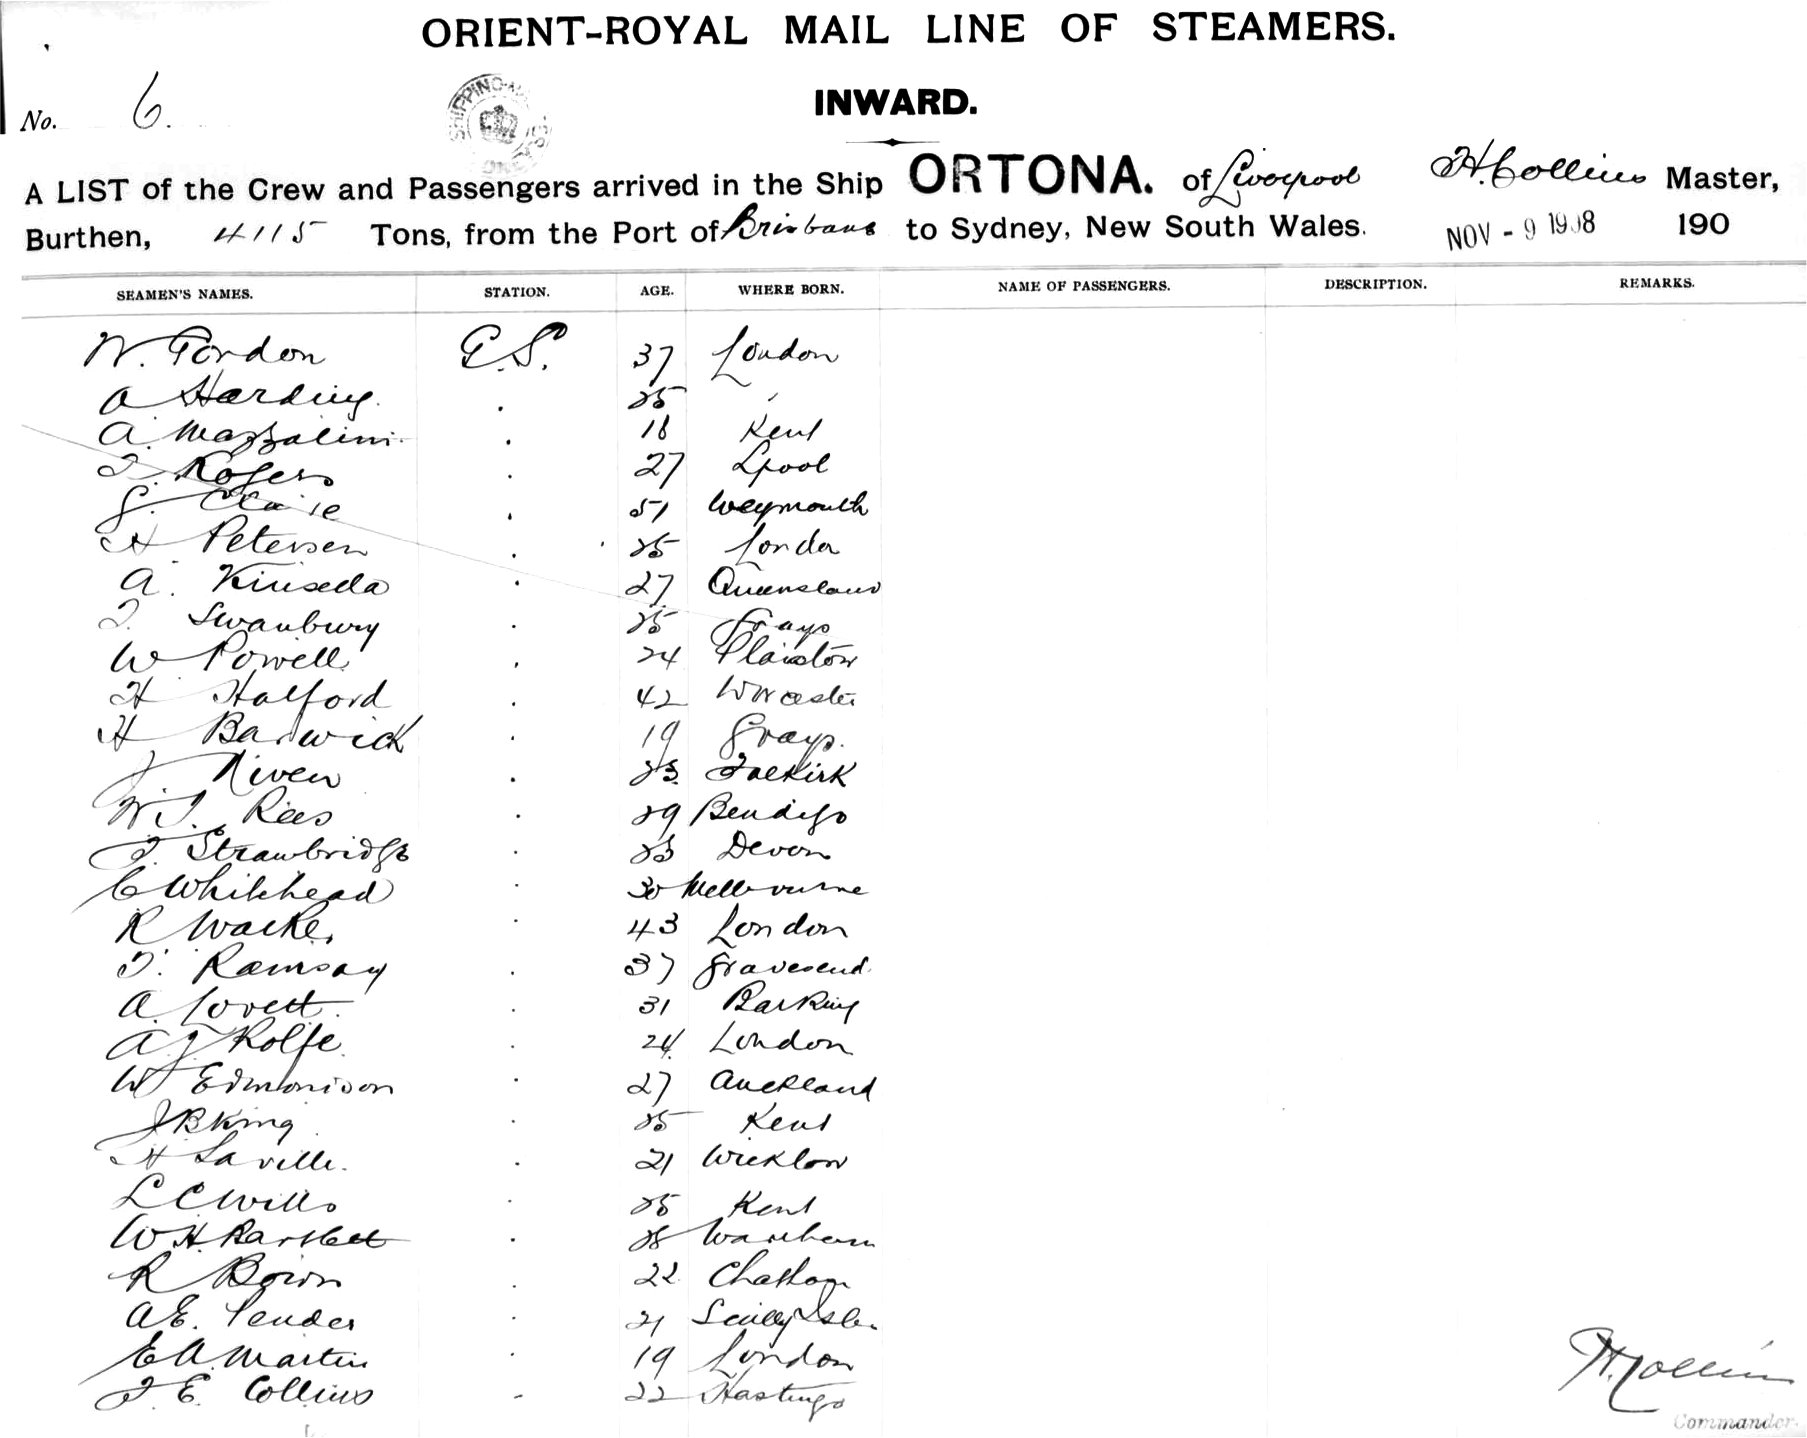 ORIENT-ROYAL MAIL LINE OF STEAMERS.
No. 6.
INWARD.
A LIST of the Crew and Passengers arrived in the Ship ORTONA. of Liverpool H. Collins Master,
Burthen, 4115 Tons, from the Port of Brisbane to Sydney, New South Wales. NOV - 9 1908 190
SEAMEN'S NAMES. STATION. AGE. WHERE BORN. NAME OF PASSENGERS. DESCRIPTION. REMARKS.
W. Gordon G.S. 37 London
A Harding . 25 "
A. Mazzalini . 18 Kent
T. Rogers . 27 Lpool
G. . 51 Weymouth
H Petersen . 25 London
A. Kinsella . 27 Queensland
T. Swanbury . 25 Grays
W Powell . 24 Plaistow
H Halford . 42 Worcester
H Barwick . 19 Grays.
J Niven . 23 Falkirk
W.T. Rees . 29 Bendigo
T. Strawbridge . 23 Devon
C Whitehead . 30 Melbourne
R Walker . 43 London
T. Ramsay . 37 Gravesend.
A. Lovett . 31 Barking
A J Rolfe . 24 London
W Edmonison . 27 Auckland
J B King . 25 Kent
H Saville . 21 Wicklow
L C Wills . 25 Kent
W.H. Bartlett . 28 Wareham
R . 22 Chatham
A.E. Pender . 21 Scilly Isles
E A. Martin . 19 London
T. E. Collins - 22 Hastings
H. Collins
Commander.